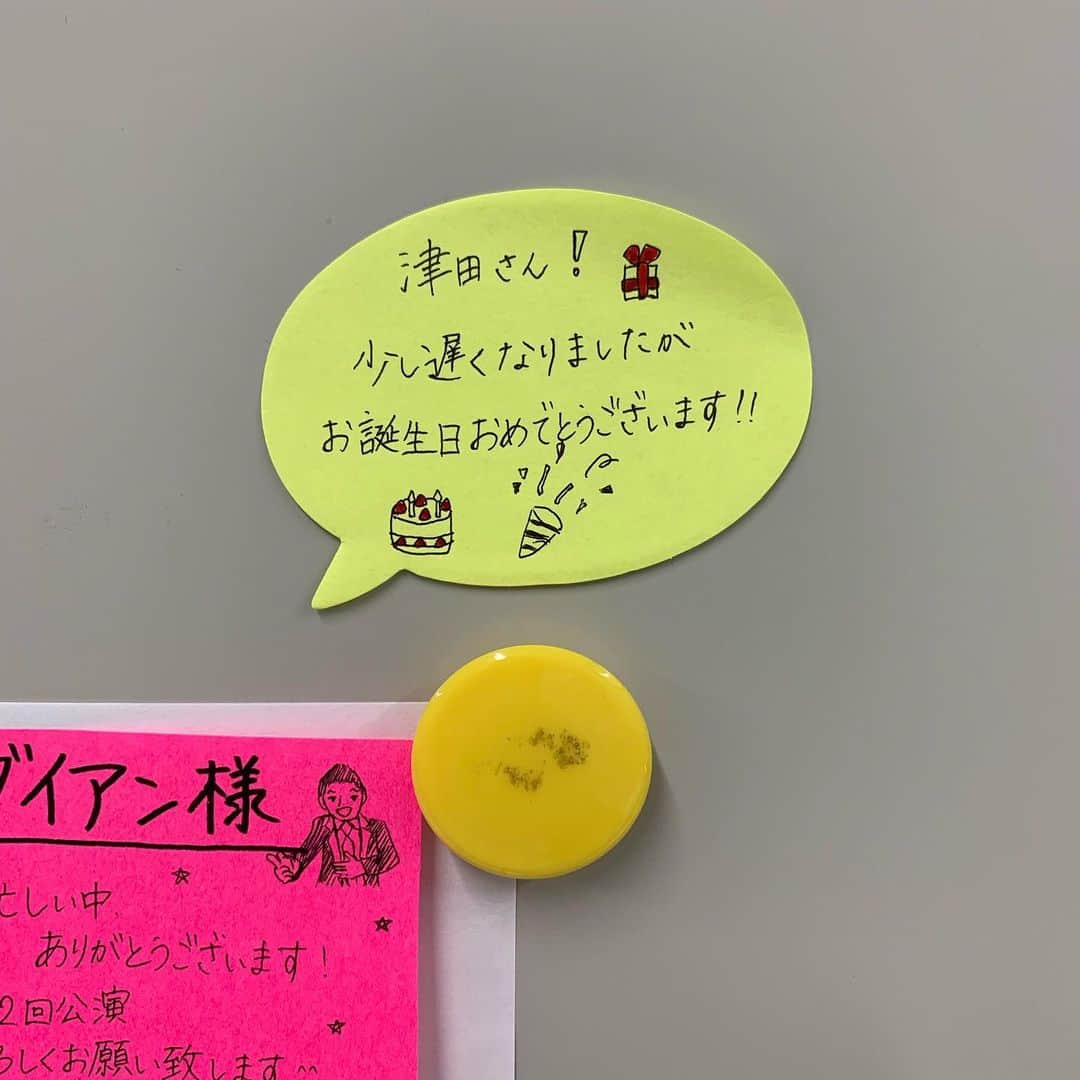 津田さん!
少し遅くなりましたが
お誕生日おめでとうございます!!
ダイアン様
忙しい中、
ありがとうございます!
2回公演
ろしくお願い致します